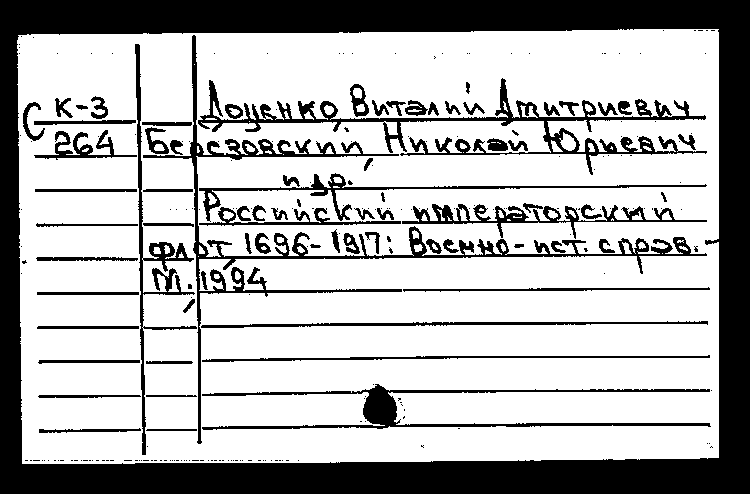 С К-3 Доценко Виталий Дмитриевич
264 Березовский Николай Юрьевич
и др.
Российский императорский
флот 1696-1917: Военно-ист. справ. -
М. 1994